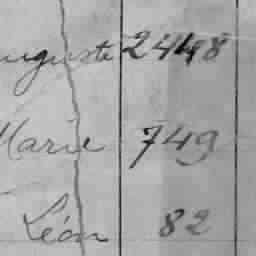 Auguste 2448
Marie 749
Léon 82